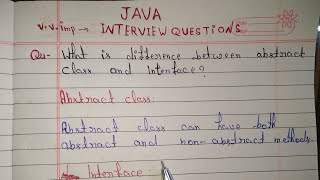 JAVA
v.v.imp → INTERVIEW QUESTIONS
Qu- What is difference between abstract
class and Interface?
Abstract class:
Abstract class can have both
abstract and non-abstract methods
Interface: